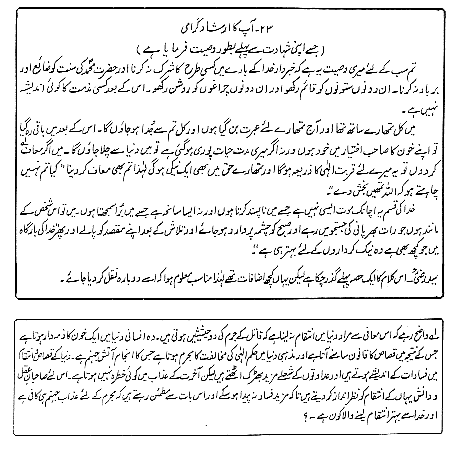 ۲۳۔ آپ کا ارشاد گرامی
(جسے اپنی شہادت سے پہلے بطور وصیت فرمایا ہے)
تم سب کے لئے میری وصیت یہ ہے کہ خبردار خدا کے بارے میں کسی طرح کا شرک نہ کرنا اور حضرت محمدؐ کی سنت کو ضائع اور
برباد نہ کرنا۔ ان دونوں ستونوں کو قائم رکھو اور ان دونوں چراغوں کو روشن رکھو۔ اس کے بعد کسی مذمت کا کوئی اندیشہ
نہیں ہے۔
میں کل تمہارے ساتھ تھا اور آج تمہارے لئے عبرت بن گیا ہوں اور کل تم سے جدا ہو جاؤں گا۔ اس کے بعد میں باقی رہ گیا
تو اپنے خون کا صاحب اختیار میں خود ہوں ورنہ اگر میری مدت حیات پوری ہو گئی ہے تو میں دنیا سے چلا جاؤں گا۔ میں اگر معاف
کر دوں تو یہ میرے لئے قربت الٰہی کا ذریعہ ہوگا اور تمہارے حق میں بھی ایک نیکی ہو گی لہٰذا تم بھی معاف کر دینا "کیا تم نہیں
چاہتے ہو کہ اللہ تمھیں بخش دے"
خدا کی قسم یہ اچانک موت ایسی نہیں ہے جسے میں ناپسند کرتا ہوں اور نہ ایسا سانحہ ہے جسے میں برا سمجھتا ہوں۔ میں تو اس شخص کے
مانند ہوں جو رات بھر پانی کی جستجو میں رہے اور صبح کو چشمہ پر وارد ہو جائے اور تلاش کے بعد اپنے مقصد کو پالے اور پھر خدا کی بارگاہ
میں جو کچھ بھی ہے وہ نیک کرداروں کے لئے بہتر ہی ہے"۔
سید رضیؒ۔ اس کلام کا ایک حصہ پہلے گذر چکا ہے لیکن یہاں کچھ اضافات تھے لہٰذا مناسب معلوم ہوا کہ اسے دوبارہ نقل کر دیا جائے۔
واضح رہے کہ اس معافی سے مراد دنیا میں انتقام نہ لینا ہے کہ قاتل کے جرم کی دو حیثیتیں ہوتی ہیں۔ وہ انسانی دنیا میں ایک خون کا ذمہ دار ہوتا ہے
جس کے نتیجہ میں قصاص کا قانون سامنے آتا ہے اور مذہبی دنیا میں حکم الٰہی کی مخالفت کا مجرم ہوتا ہے جس کا انجام آتش جہنم ہے۔ دنیا کے قصاص و انتقام
میں فسادات کے اندیشے ہوتے ہیں اور عداوتوں کے شعلے مزید بھڑک اٹھتے ہیں لیکن آخرت کے عذاب میں کوئی خطرہ نہیں ہوتا ہے۔ اس لئے صاحبان عقل
و دانش یہاں کے انتقام کو نظر انداز کر دیتے ہیں تاکہ مزید فساد نہ پیدا ہو سکے اور اس بات سے مطمئن رہتے ہیں کہ مجرم کے لئے عذاب جہنم ہی کافی ہے
اور خدا سے بہتر انتقام لینے والا کون ہے۔؟